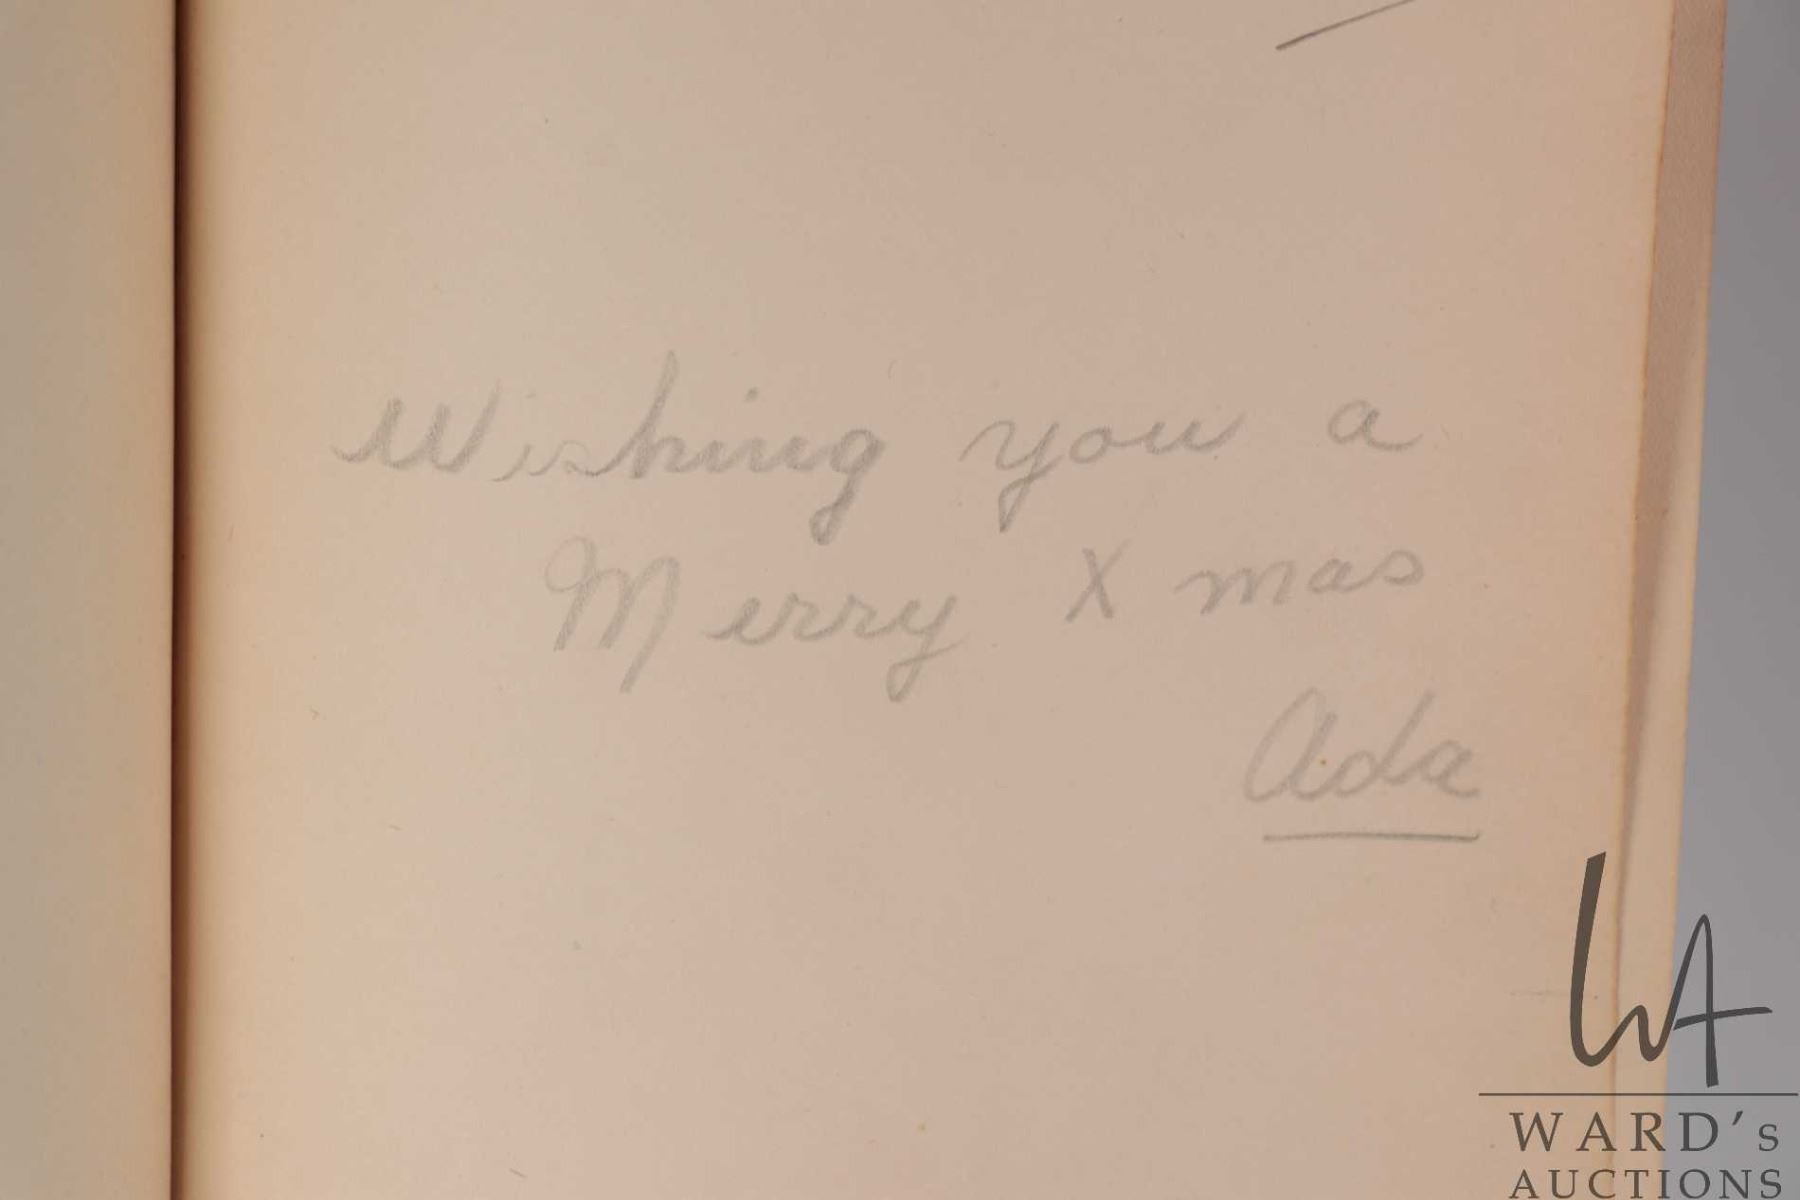 Wishing you a
Merry Xmas
Ada
WA
WARD's
AUCTIONS